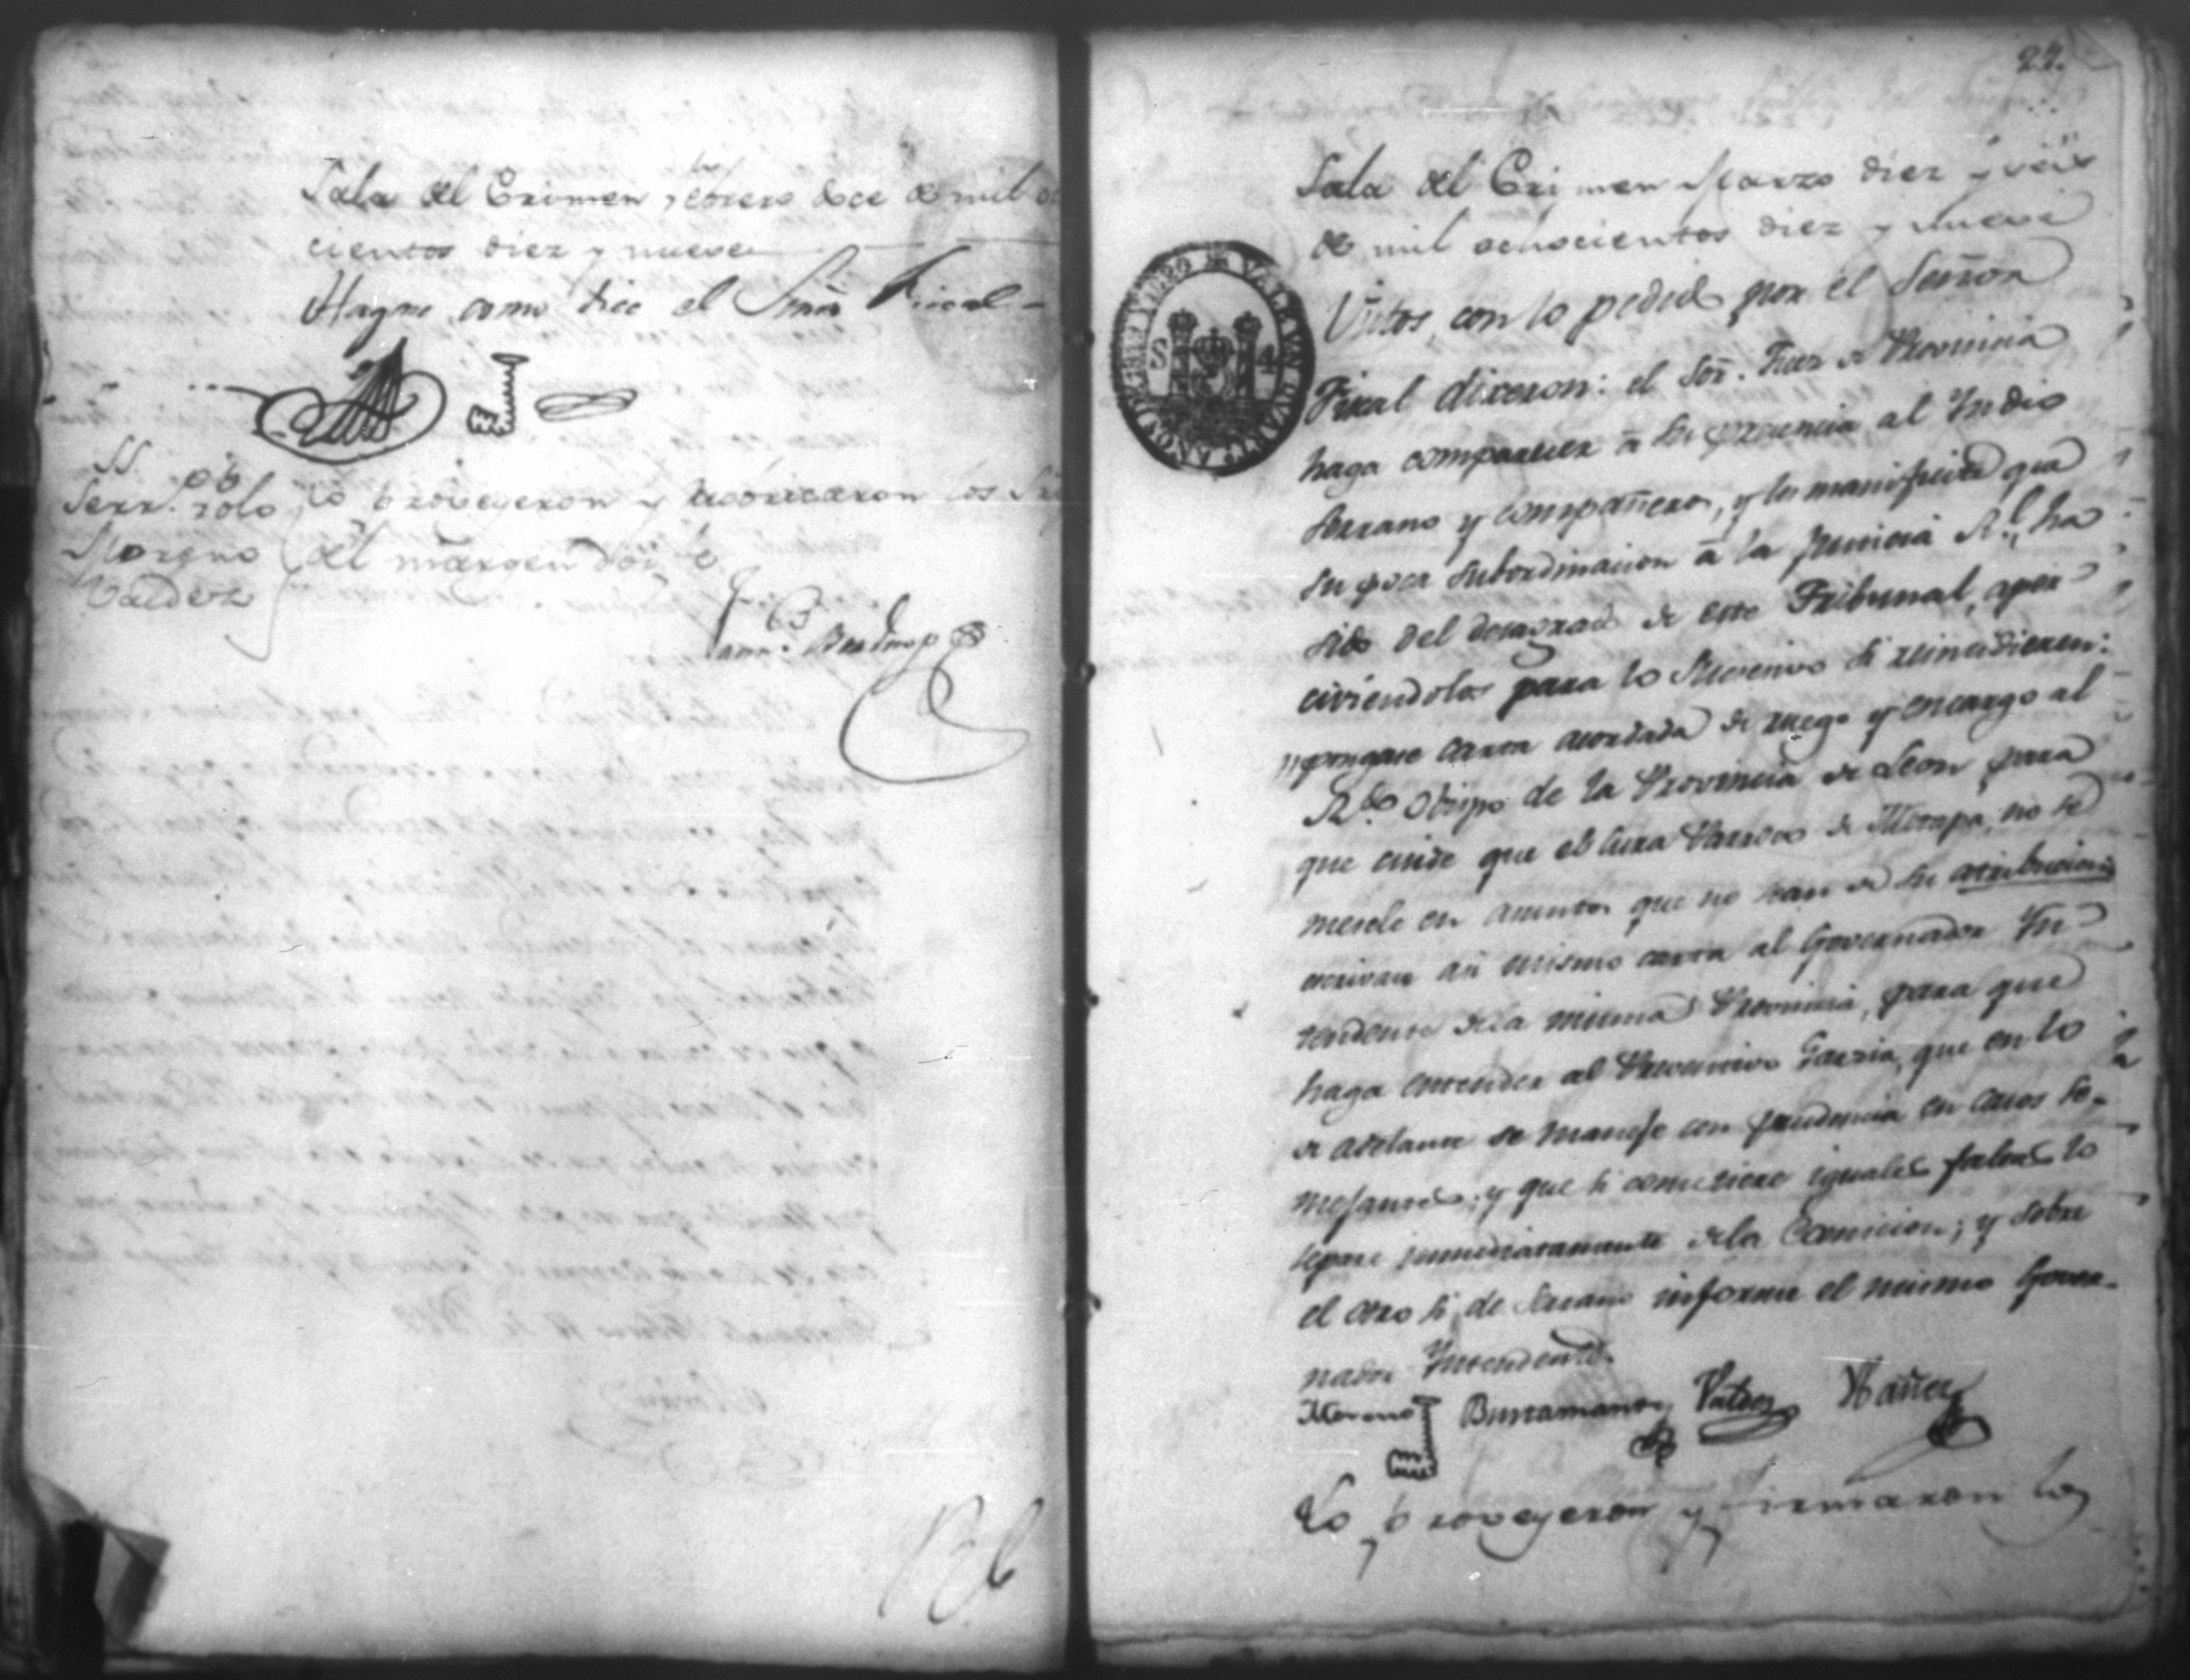 Sala del Crimen febrero doce de mil o
cientos diez y nueve
Hagase como dice el Señor Fiscal
SS.
Serr. solo
Moreno
Valdez
lo proveyeron y rubricaron los Sres
del margen doi fe
27.
Sala del Crimen Marzo diez y seis
de mil ochocientos diez y nueve
Vistos, con lo pedido por el Señor
Fiscal dixeron: el Sor. Juez de Provincia
haga comparecer á su presencia al Yndio
Serrano y compañeros, y les manifieste que
su poca subordinacion á la Justicia Rl. ha
sido del desagrado de este Tribunal, aper
civiendolos para lo sucesivo si reincidieren:
pongase carta acordada de ruego y encargo al
R.do Obispo de la Provincia de Leon para
que cuide que el Cura Parroco de Metapa, no se
mescle en asuntos que no sean de su atribucion
escrivase asi mismo carta al Governador Yn
tendente dela misma Provincia, para que
haga entender al Garzia, que en lo
de adelante se maneje con prudencia en casos se-
mejantes; y que si cometiere iguales faltas lo
separe immediatamente dela Comicion; y sobre
el otro si de Serrano informe el mismo Gover-
nador Yntendente.
Moreno Bustamante Valdez Ybañez
Lo proveyeron y firmaron los
VALE
S 4